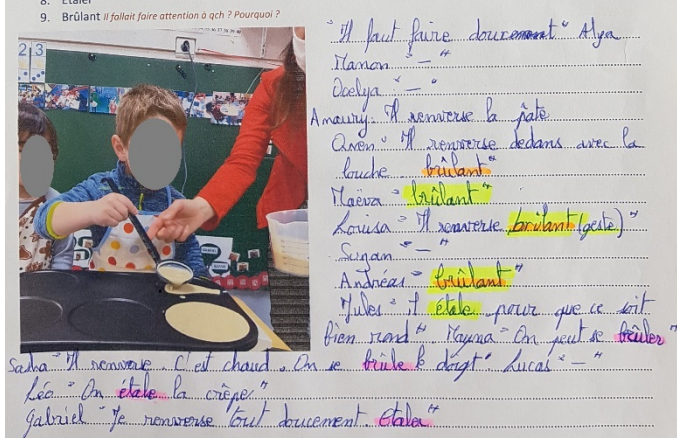 8. Etaler
9. Brûlant Il fallait faire attention à qch ? Pourquoi ?
2 3
"Il faut faire doucement" Alya
Manon " — "
Daelya " — "
Amaury. Il renverse la pâte
Owen " Il renverse dedans avec la
louche. brûlant"
Maëva " brûlant"
Louisa " Il renverse brûlant (geste) "
Sunan " — "
Andréas " brûlant"
Jules " il étale pour que ce soit
bien rond " Mayna " On peut se brûler"
Sacha " Il renverse. C'est chaud. On se brûle le doigt" Lucas " — "
Léo " On étale la crêpe "
Gabriel " Je renverse tout doucement. Etaler"